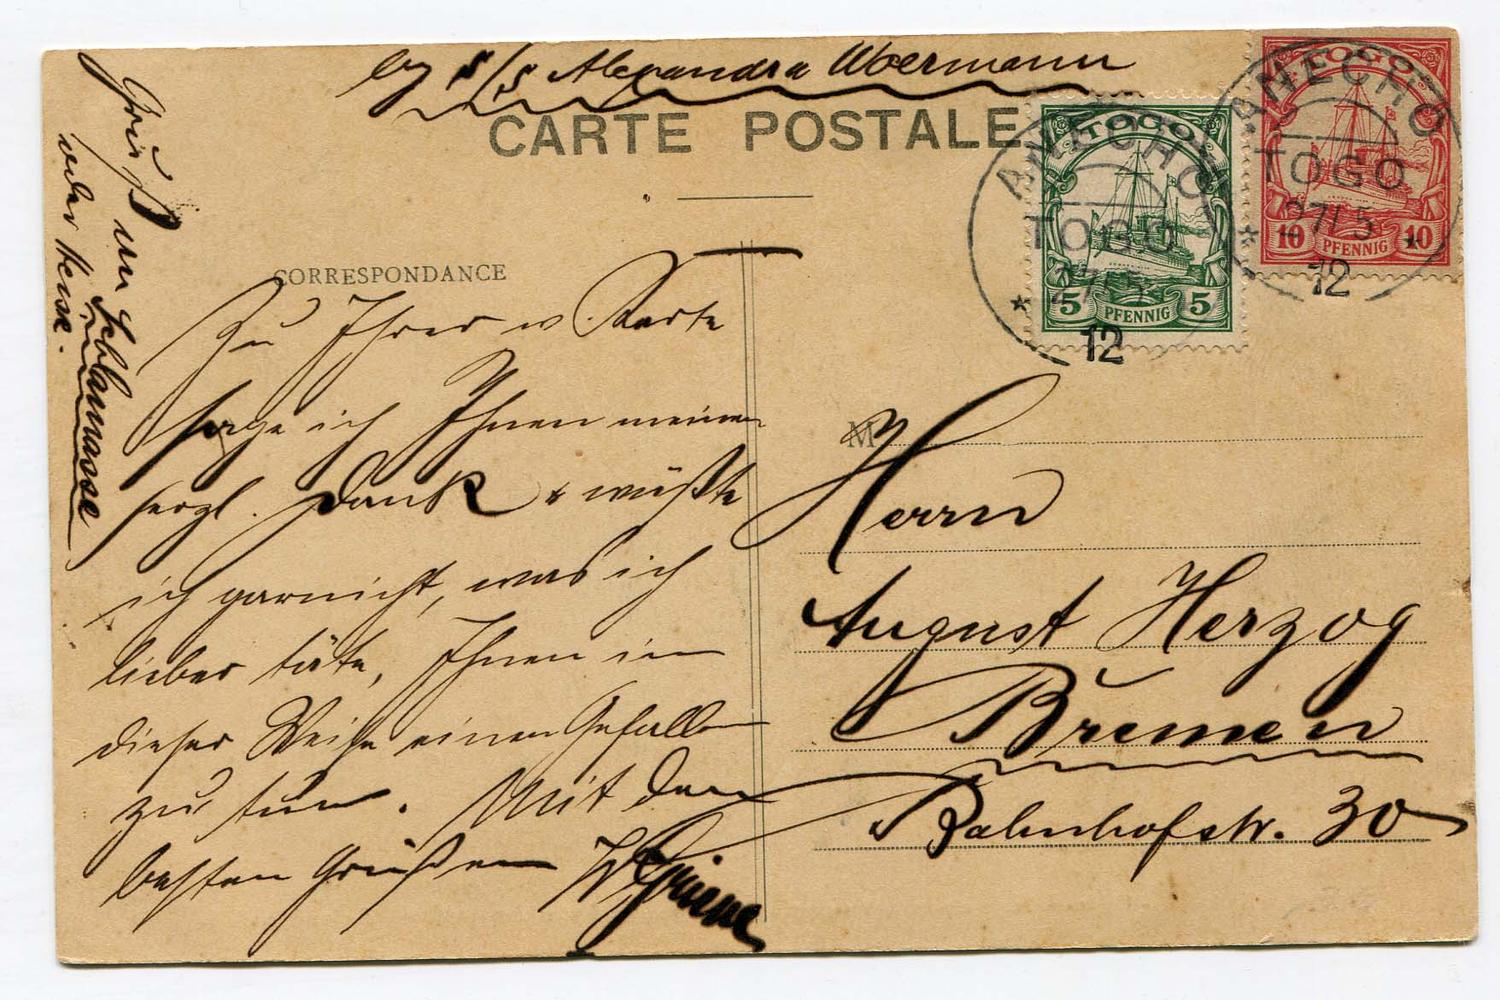 by s/s Alexandra Woermann
CARTE POSTALE
CORRESPONDANCE
TOGO
5 PFENNIG 5
TOGO
10 PFENNIG 10
ANECHO
TOGO
27/5
12
ANECHO
TOGO
27/5
12
Zu Ihrer w. Karte
sage ich Ihnen meinen
herzl. Dank & wüßte
ich garnicht, was ich
lieber täte, Ihnen in
dieser Weise einen Gefallen
zu tun. Mit den
besten Grüßen
Gruß an
M
Herrn
August Herzog
Bremen
Bahnhofstr. 30